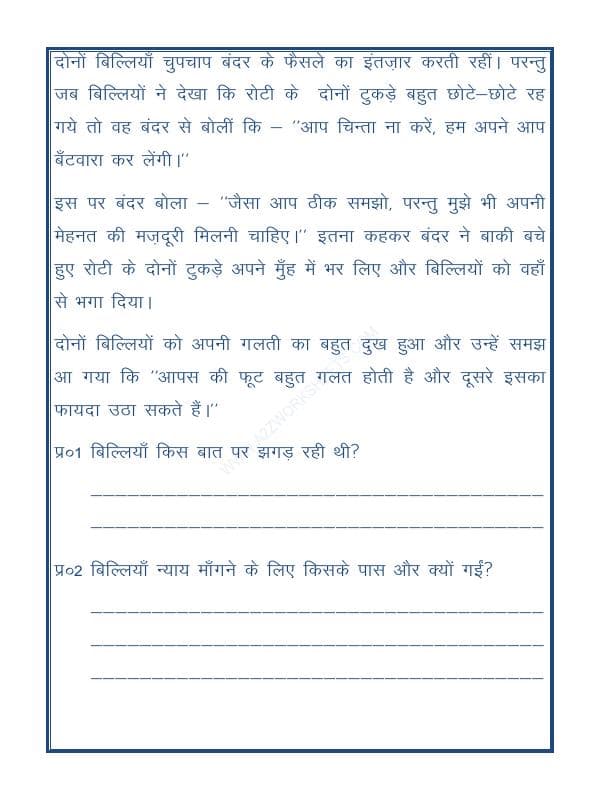 दोनों बिल्लियाँ चुपचाप बंदर के फैसले का इंतज़ार करती रहीं। परन्तु
जब बिल्लियों ने देखा कि रोटी के दोनों टुकड़े बहुत छोटे–छोटे रह
गये तो वह बंदर से बोलीं कि – ''आप चिन्ता ना करें, हम अपने आप
बँटवारा कर लेंगी।''
इस पर बंदर बोला – ''जैसा आप ठीक समझो, परन्तु मुझे भी अपनी
मेहनत की मज़दूरी मिलनी चाहिए।'' इतना कहकर बंदर ने बाकी बचे
हुए रोटी के दोनों टुकड़े अपने मुँह में भर लिए और बिल्लियों को वहाँ
से भगा दिया।
दोनों बिल्लियों को अपनी गलती का बहुत दुख हुआ और उन्हें समझ
आ गया कि ''आपस की फूट बहुत गलत होती है और दूसरे इसका
फायदा उठा सकते हैं।''
WWW.A2ZWORKSHEETS.COM
प्र०1 बिल्लियाँ किस बात पर झगड़ रही थी?
प्र०2 बिल्लियाँ न्याय माँगने के लिए किसके पास और क्यों गईं?